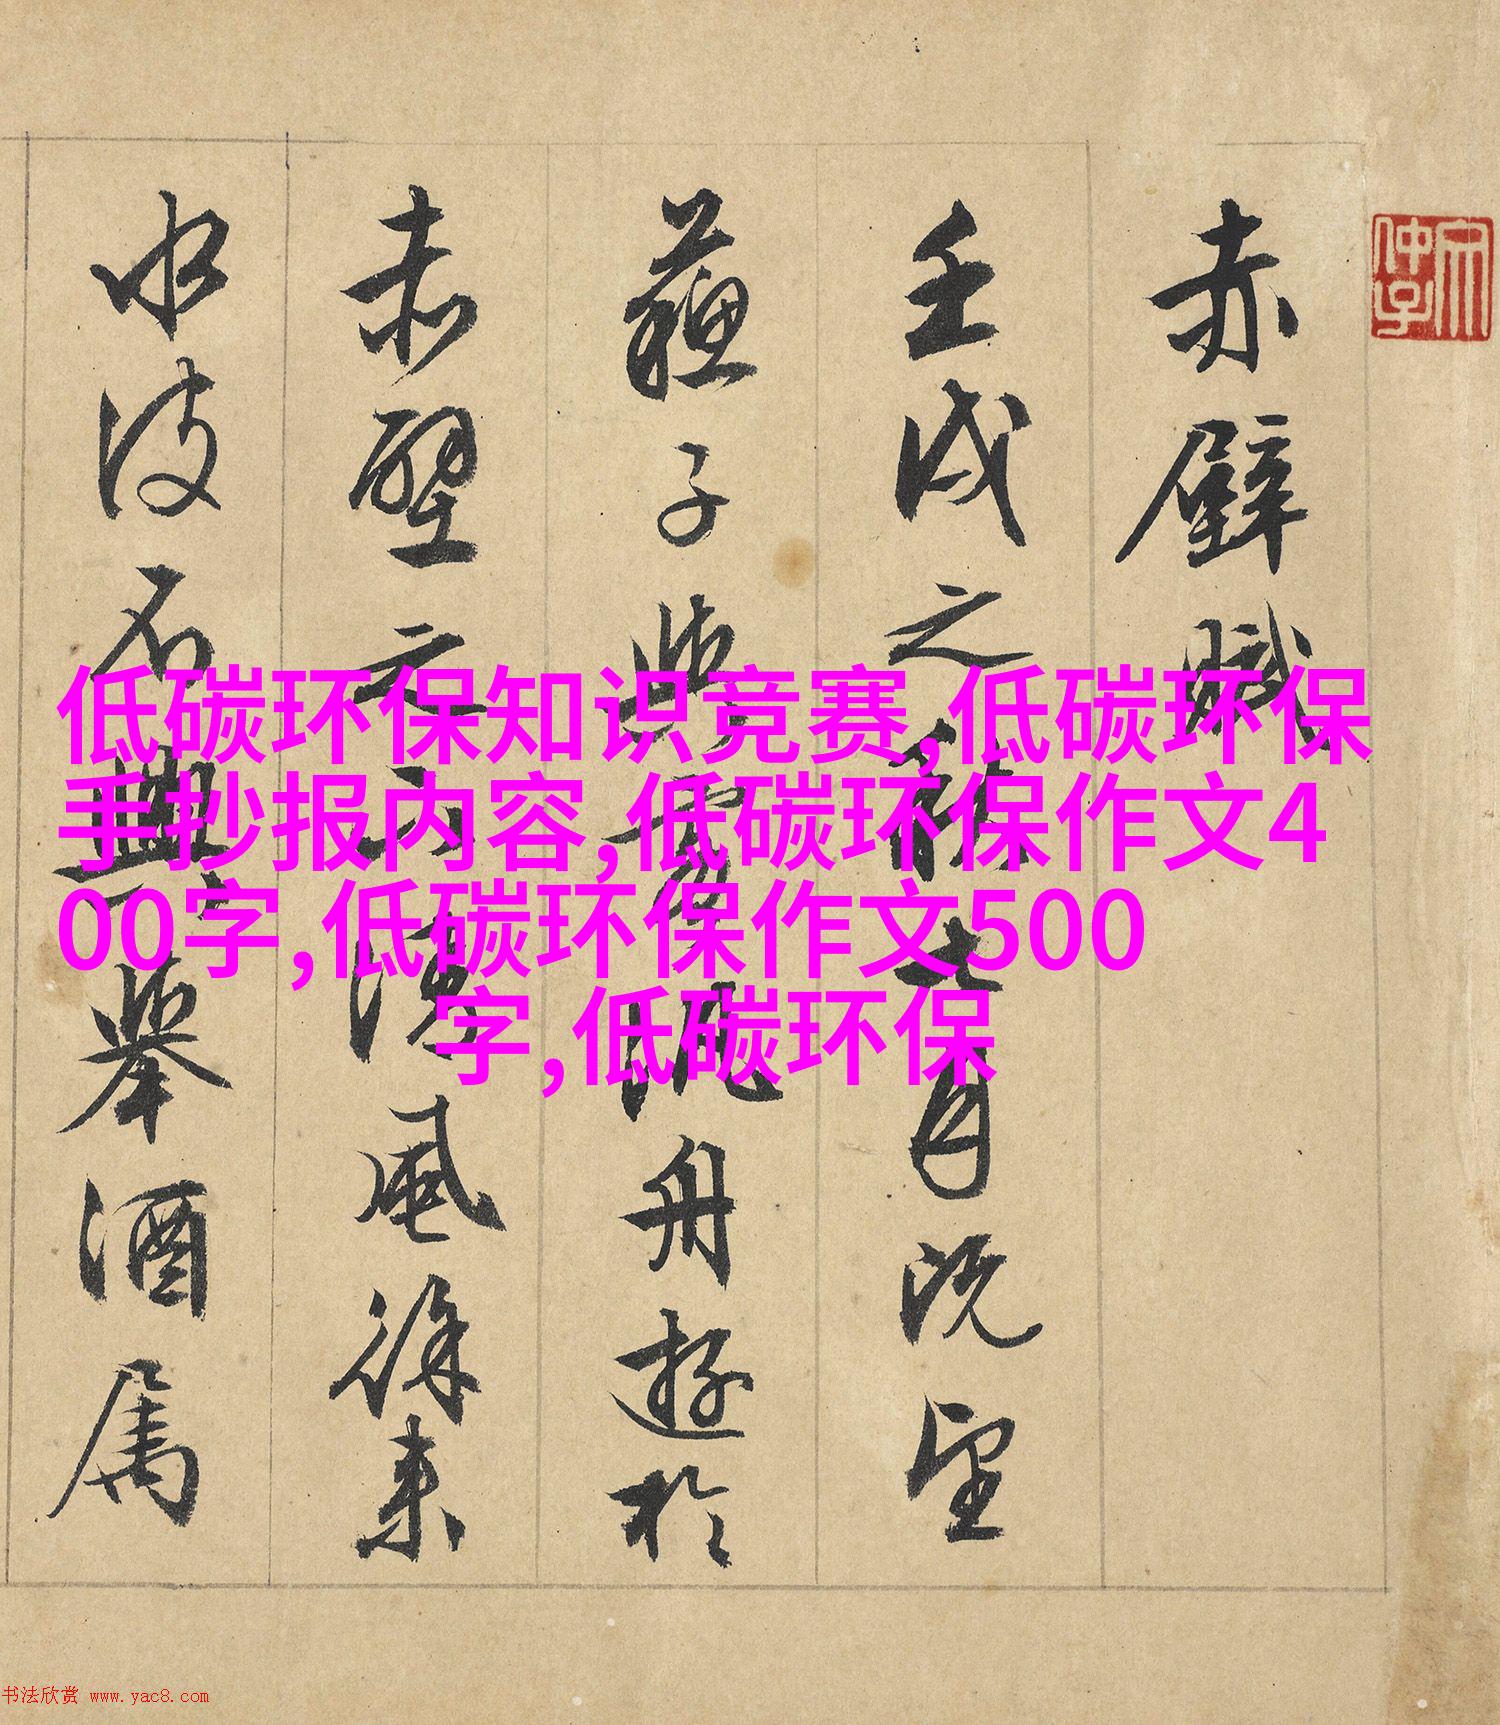 赤壁賦
壬戌之秋七月既望
蘇子與客泛舟遊於
赤壁之下清風徐来
水波不興舉酒屬
低碳环保知识竞赛,低碳环保
手抄报内容,低碳环保作文4
00字,低碳环保作文500
字,低碳环保
书法欣赏 www.yac8.com